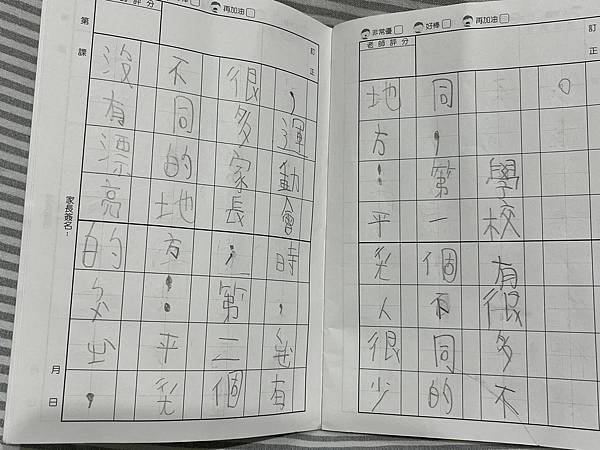 非常優 好棒 再加油
訂正
老師評分
。
學校有很多不
同，第一個不同的
地方：平常人很少
再加油
訂正
老師評分
，運動會時，有
很多家長；第二個
不同的地方：平常
沒有漂亮的出，
第 課
家長簽名：
月 日